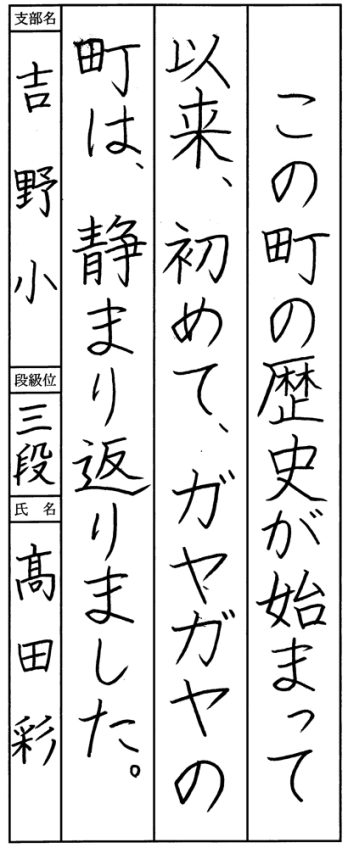 この町の歴史が始まって
以来、初めて、ガヤガヤの
町は、静まり返りました。
支部名
吉野小
段級位
三段
氏名
髙田彩